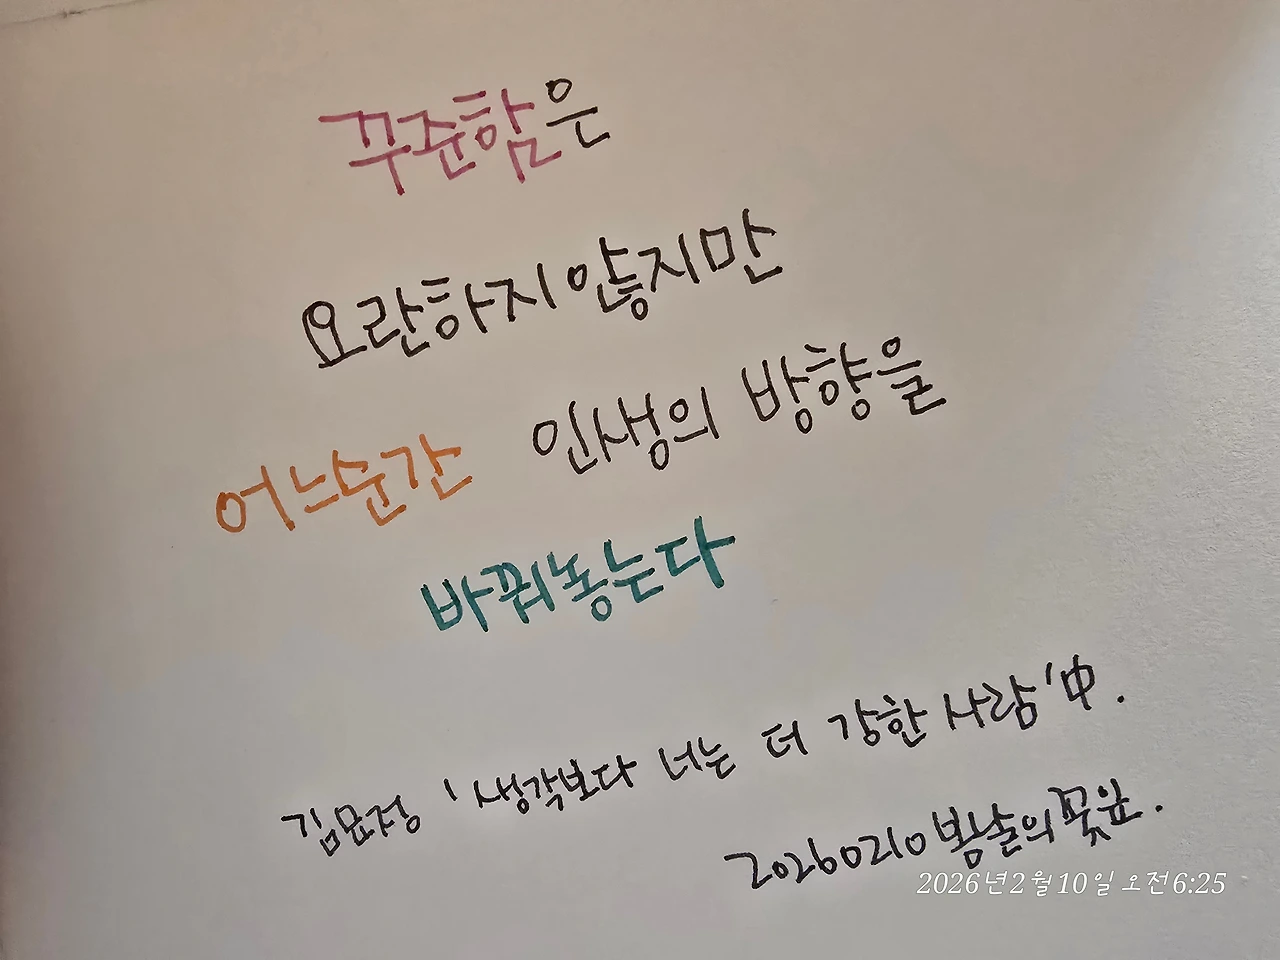 꾸준함은
요란하지 않지만
어느순간 인생의 방향을
바꿔놓는다
김문정 '생각보다 너는 더 강한 사람'中.
20260210 봄날의 꽃잎.
2026년2월10일 오전6:25